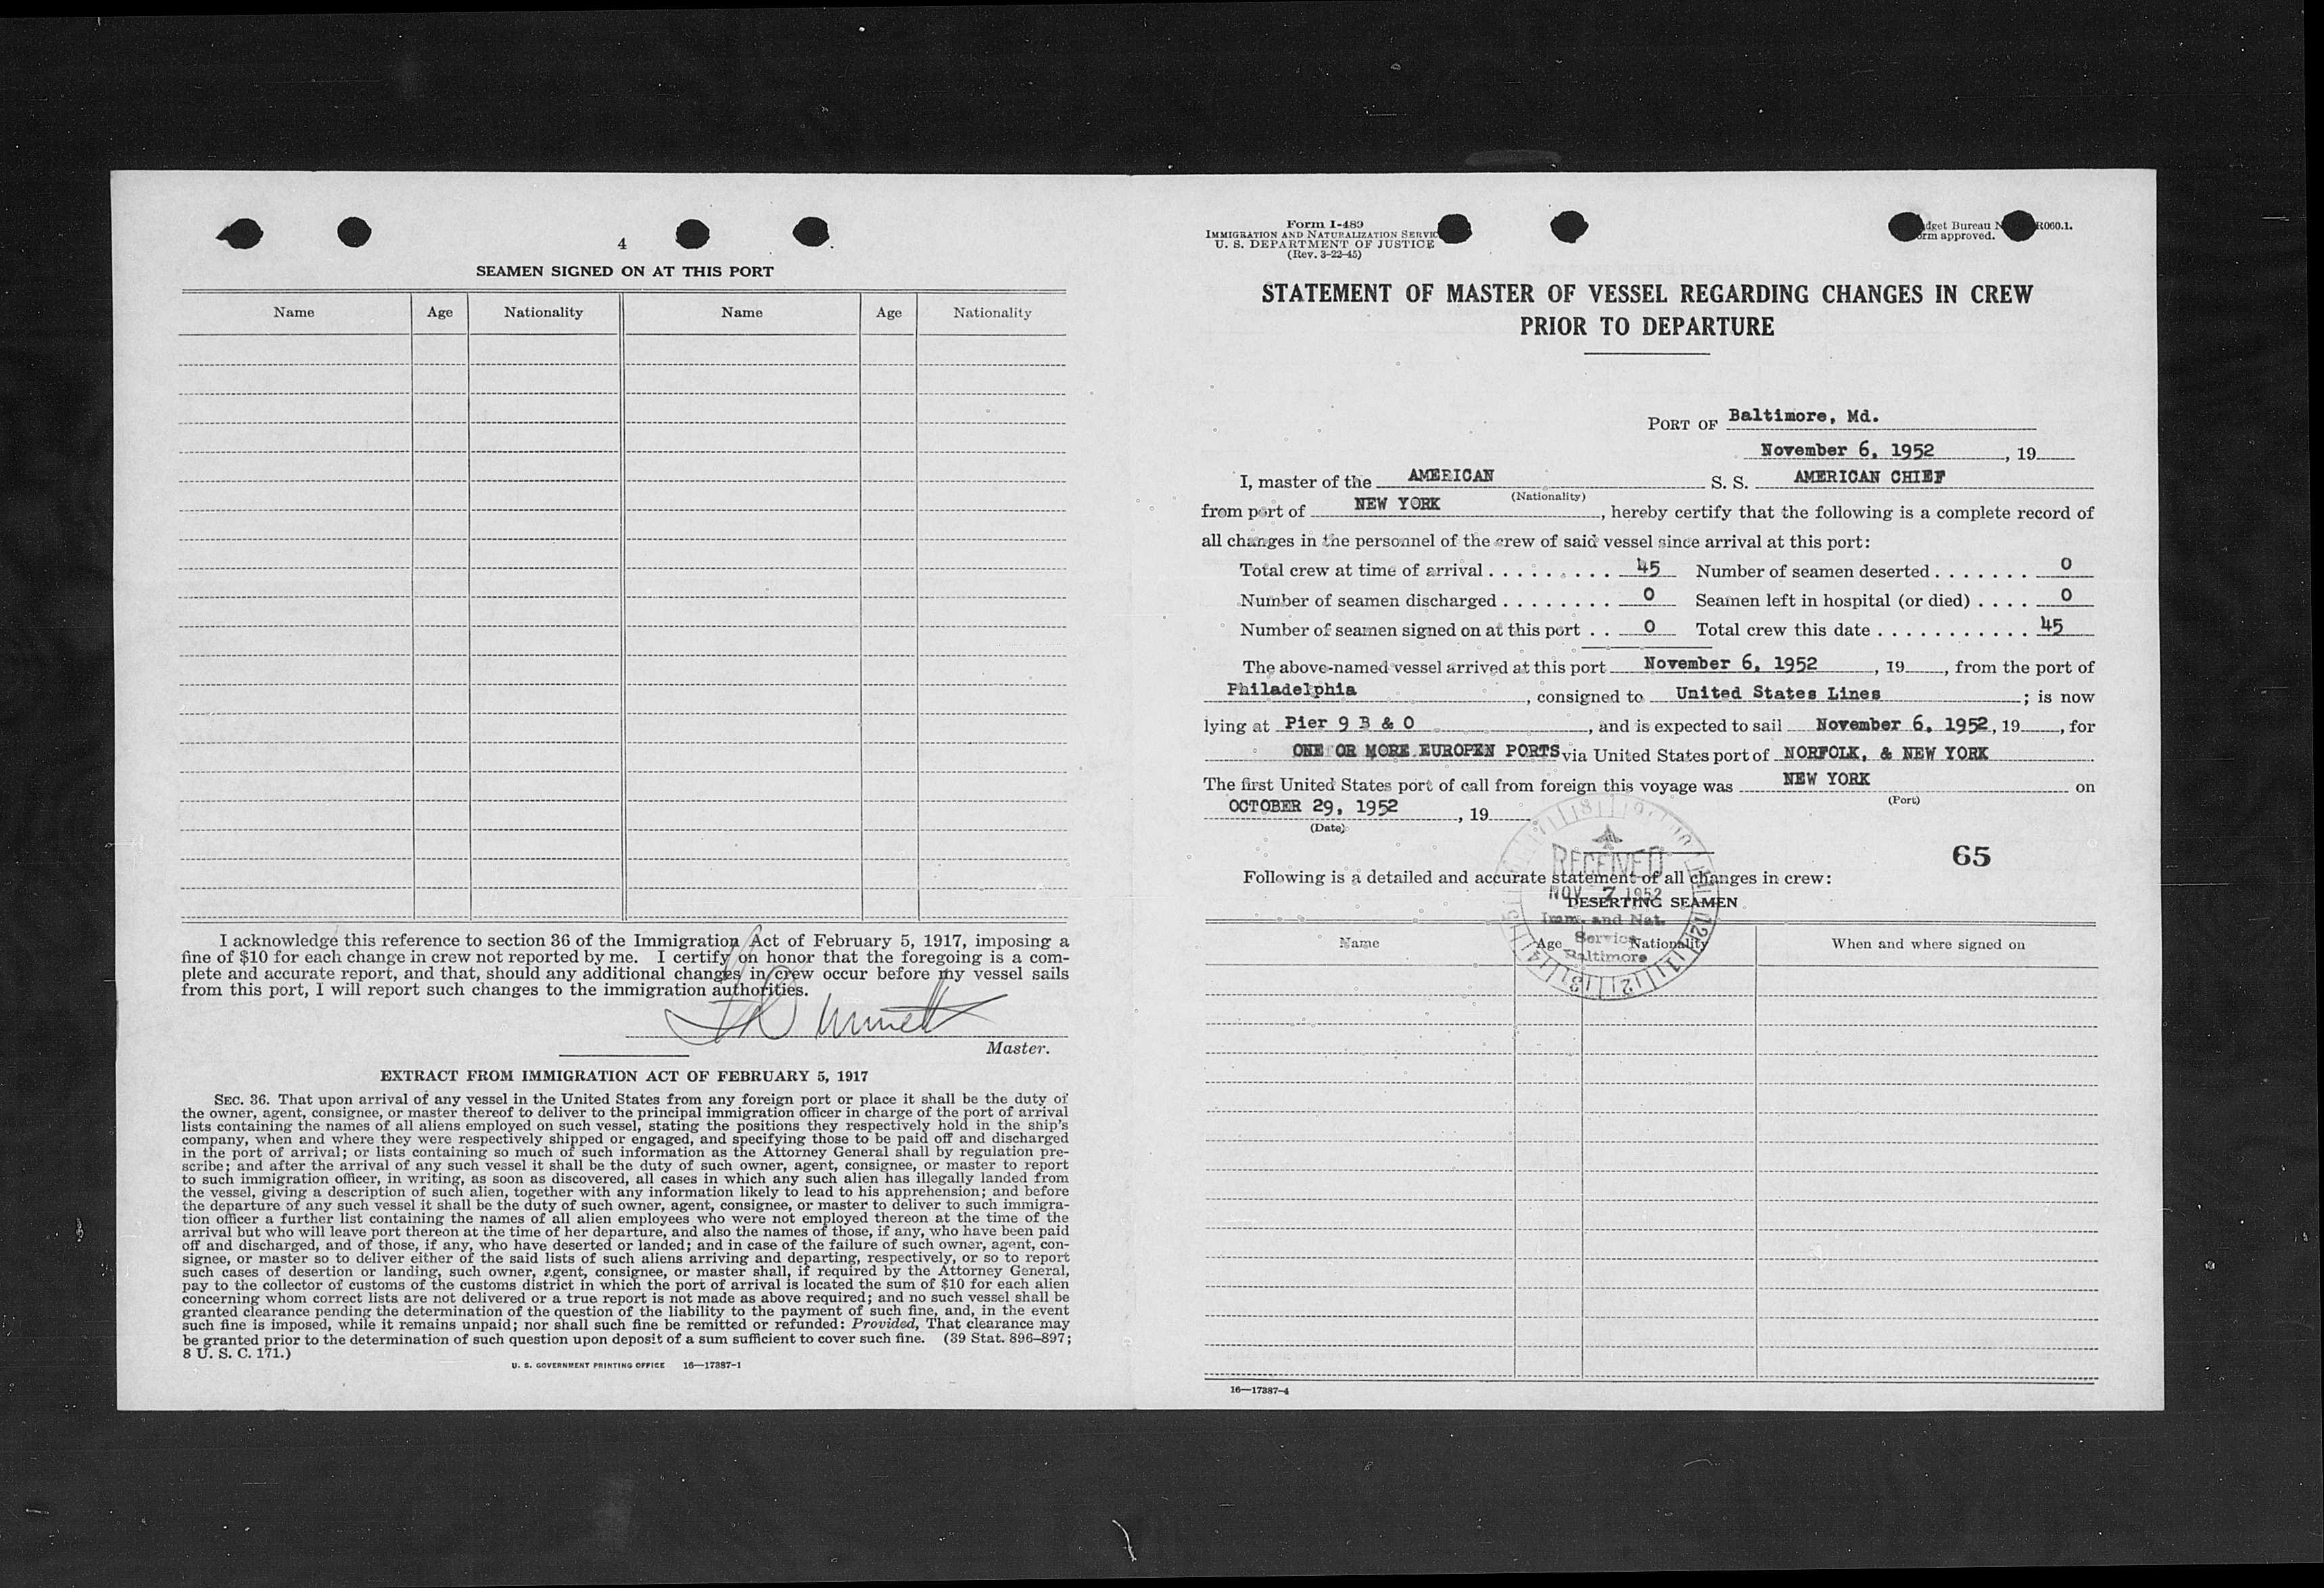 4
SEAMEN SIGNED ON AT THIS PORT
Name Age Nationality Name Age Nationality
I acknowledge this reference to section 36 of the Immigration Act of February 5, 1917, imposing a
fine of $10 for each change in crew not reported by me. I certify on honor that the foregoing is a com-
plete and accurate report, and that, should any additional changes in crew occur before my vessel sails
from this port, I will report such changes to the immigration authorities.
Master.
EXTRACT FROM IMMIGRATION ACT OF FEBRUARY 5, 1917
SEC. 36. That upon arrival of any vessel in the United States from any foreign port or place it shall be the duty of
the owner, agent, consignee, or master thereof to deliver to the principal immigration officer in charge of the port of arrival
lists containing the names of all aliens employed on such vessel, stating the positions they respectively hold in the ship's
company, when and where they were respectively shipped or engaged, and specifying those to be paid off and discharged
in the port of arrival; or lists containing so much of such information as the Attorney General shall by regulation pre-
scribe; and after the arrival of any such vessel it shall be the duty of such owner, agent, consignee, or master to report
to such immigration officer, in writing, as soon as discovered, all cases in which any such alien has illegally landed from
the vessel, giving a description of such alien, together with any information likely to lead to his apprehension; and before
the departure of any such vessel it shall be the duty of such owner, agent, consignee, or master to deliver to such immigra-
tion officer a further list containing the names of all alien employees who were not employed thereon at the time of the
arrival but who will leave port thereon at the time of her departure, and also the names of those, if any, who have been paid
off and discharged, and of those, if any, who have deserted or landed; and in case of the failure of such owner, agent, con-
signee, or master so to deliver either of the said lists of such aliens arriving and departing, respectively, or so to report
such cases of desertion or landing, such owner, agent, consignee, or master shall, if required by the Attorney General,
pay to the collector of customs of the customs district in which the port of arrival is located the sum of $10 for each alien
concerning whom correct lists are not delivered or a true report is not made as above required; and no such vessel shall be
granted clearance pending the determination of the question of the liability to the payment of such fine, and, in the event
such fine is imposed, while it remains unpaid; nor shall such fine be remitted or refunded: Provided, That clearance may
be granted prior to the determination of such question upon deposit of a sum sufficient to cover such fine. (39 Stat. 896–897;
8 U. S. C. 171.)
U. S. GOVERNMENT PRINTING OFFICE 16—17387-1
Form I-489
IMMIGRATION AND NATURALIZATION SERVIC
U. S. DEPARTMENT OF JUSTICE
(Rev. 3-22-45)
dget Bureau N R060.1.
orm approved.
STATEMENT OF MASTER OF VESSEL REGARDING CHANGES IN CREW
PRIOR TO DEPARTURE
PORT OF Baltimore, Md.
November 6, 1952, 19
I, master of the AMERICAN S. S. AMERICAN CHIEF
(Nationality)
from port of NEW YORK, hereby certify that the following is a complete record of
all changes in the personnel of the crew of said vessel since arrival at this port:
Total crew at time of arrival . . . . . . . . . 45 Number of seamen deserted . . . . . . . 0
Number of seamen discharged . . . . . . . . 0 Seamen left in hospital (or died) . . . . 0
Number of seamen signed on at this port . . 0 Total crew this date . . . . . . . . . . . 45
The above-named vessel arrived at this port November 6, 1952, 19, from the port of
Philadelphia, consigned to United States Lines; is now
lying at Pier 9 B & O, and is expected to sail November 6, 1952, 19, for
ONE OR MORE EUROPEN PORTS via United States port of NORFOLK, & NEW YORK
The first United States port of call from foreign this voyage was NEW YORK on
(Port)
OCTOBER 29, 1952, 19
(Date)
65
RECEIVED
NOV 7 1952
Imm. and Nat.
Service
Baltimore
Following is a detailed and accurate statement of all changes in crew:
DESERTING SEAMEN
Name Age Nationality When and where signed on
16—17387-4